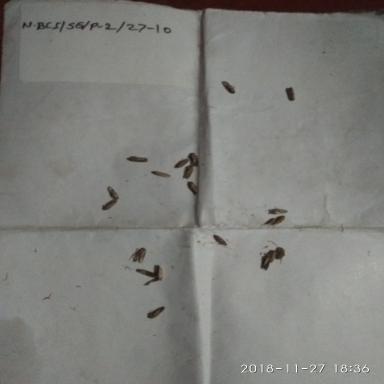 N-BCI/SG/P-2/27-10
2018-11-27 18:36